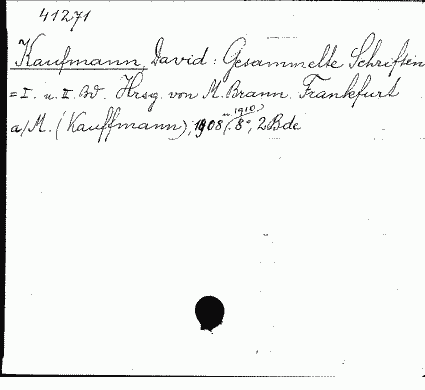 41271
Kaufmann, David: Gesammelte Schriften
= I. u. II. Bd. Hrsg. von M. Brann. Frankfurt
a/M. (Kauffmann), 1908, u. 1910, 8°, 2 Bde